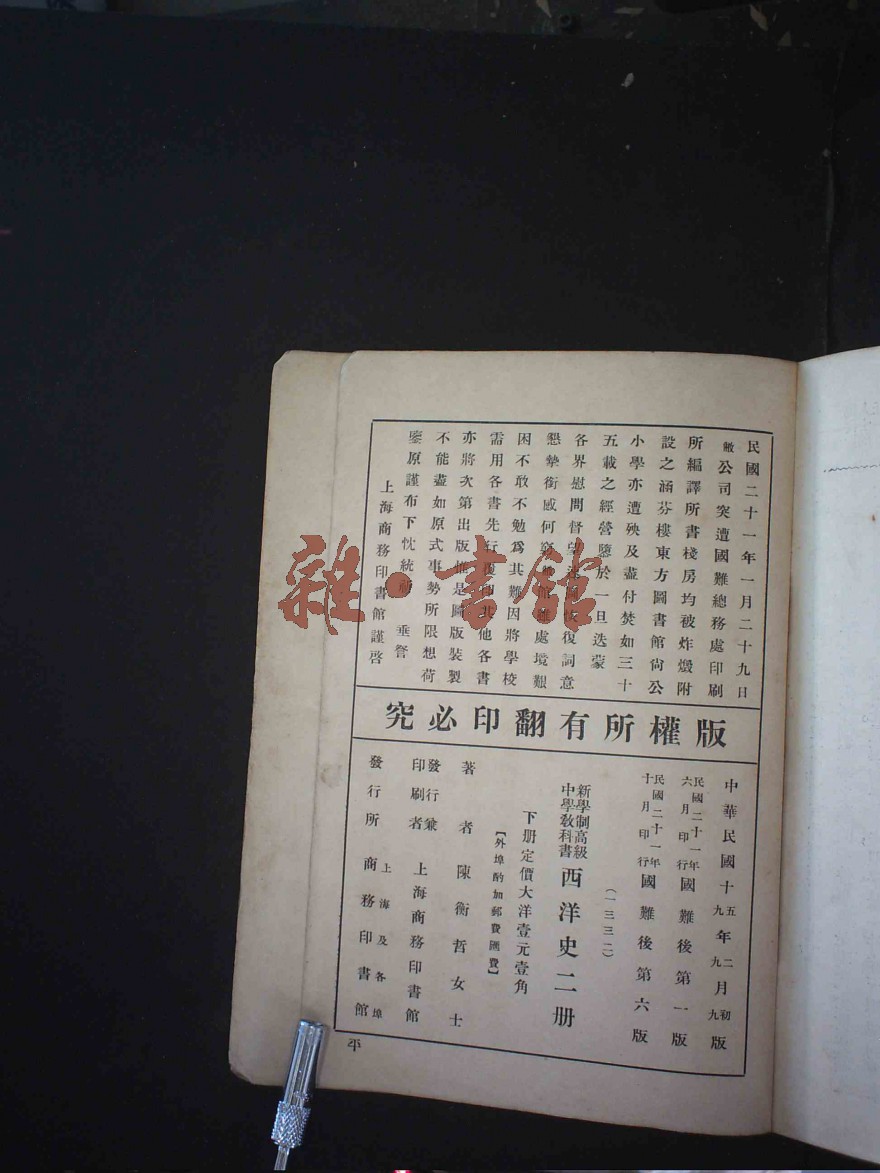 民國二十一年一月二十九日
敝公司突遭國難總務處印刷
所編譯所書棧房均被炸燬附
設之涵芬樓東方圖書館尙公
小學亦遭殃及盡付焚如三十
五載之經營隳於一旦迭蒙
各界慰問督望速圖恢復詞意
懇摯銜感何窮敝館雖處境艱
困不敢不勉爲其難因將學校
需用各書先行覆印其他各書
亦將次第出版惟是圖版裝製
不能盡如原式事勢所限想荷
鑒原謹布下忱統祈 垂詧
上海商務印書館謹啓
版權所有翻印必究
中華民國十五年二月初版
九年九月九版
民國二十一年六月印行國難後第一版
民國二十一年十月印行國難後第六版
(一三三二)
新學制高級中學教科書 西洋史二册
下册定價大洋壹元壹角
【外埠酌加郵費匯費】
著者 陳衡哲女士
發行兼印刷者 上海商務印書館
發行所 上海及各埠 商務印書館
雜·書館